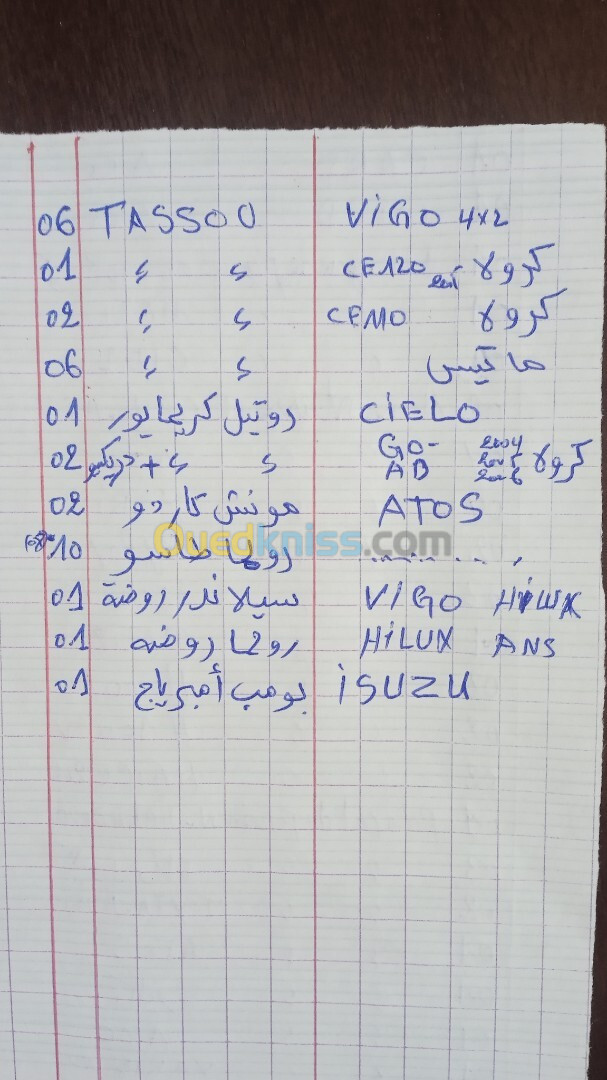 06 TASSOU VIGO 4x2
01 " " CE120 2001 كرولا
02 " " CE110 كرولا
06 " " ماتيس
01 روتيل كريمايور CIELO
02 " " + GO- AB 2004 2005 2006 كرولا
02 مونش كاردو ATOS
10 روما طاسو ..........
01 سيلاندر روضة VIGO HiLUX
01 روما روضه HiLUX ANS
01 بومب أمبرياج iSUZU
Ouedkniss.com